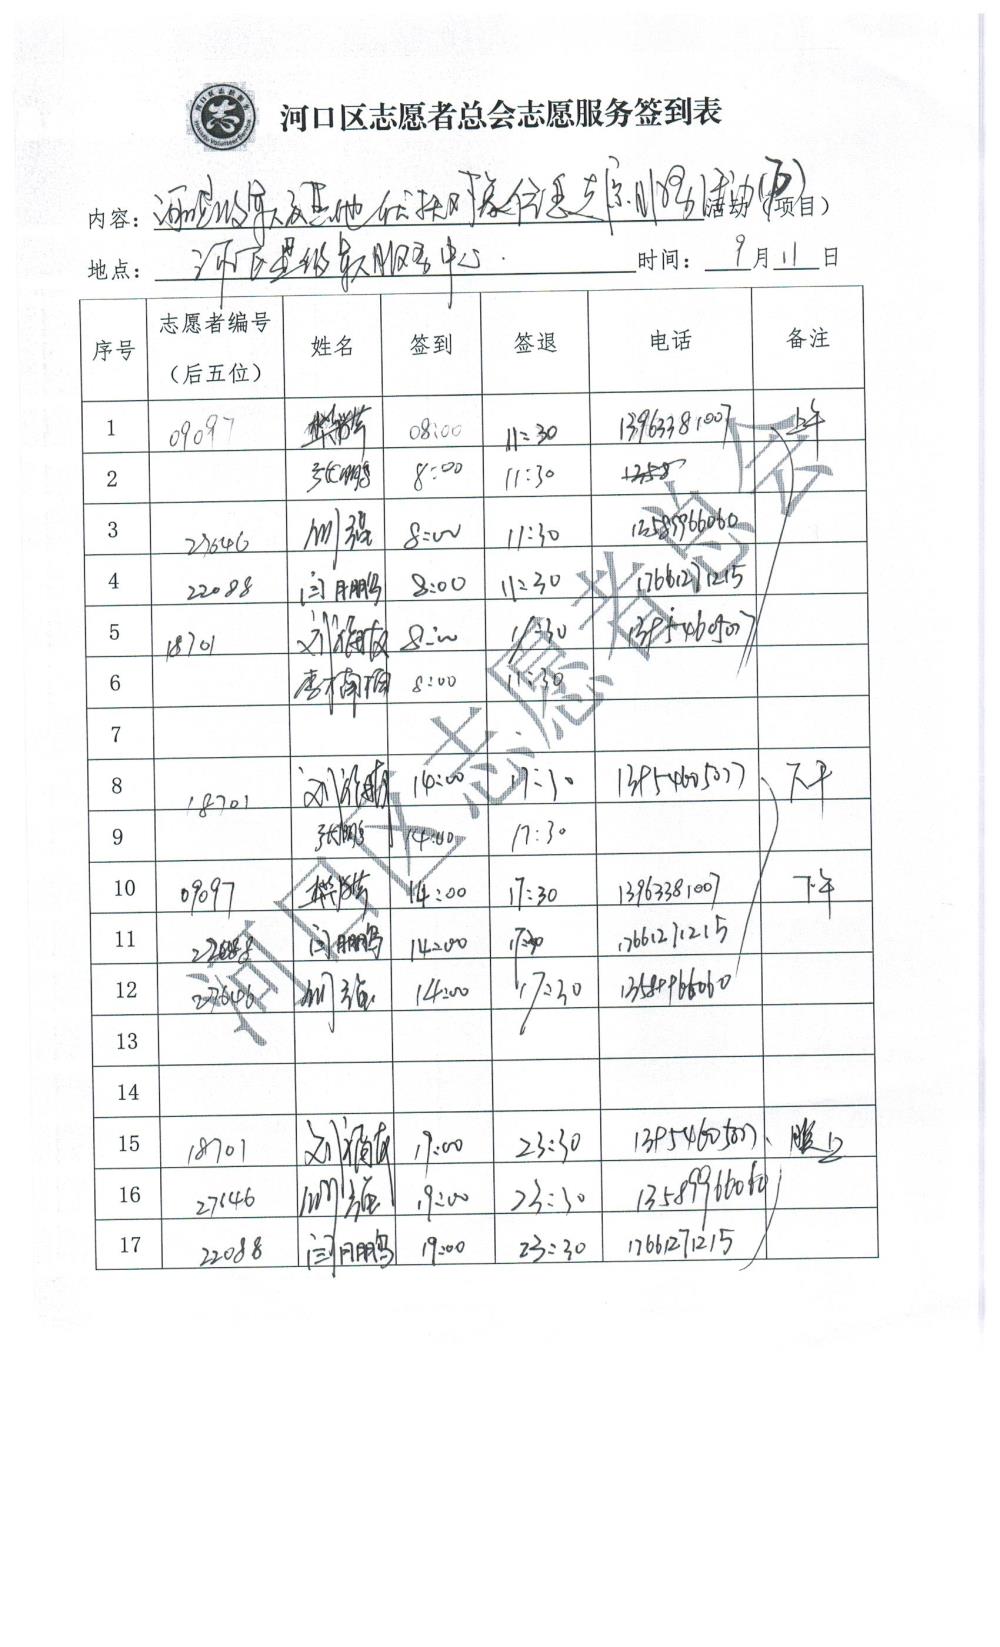 河口区志愿者总会志愿服务签到表
内容： 活动（项目）
地点： 服务中心 时间：9月11日
序号 志愿者编号（后五位） 姓名 签到 签退 电话 备注
1 09097 08:00 11:30 13963381007 上午
2 张鹏 8:00 11:30 1358
3 27646 刘强 8:00 11:30 13589966060
4 22088 闫鹏 8:00 11:30 17661271215
5 18701 刘 8:00 11:30 13954605077
6 李楠楠 8:00 11:30
7
8 18701 刘 14:00 17:30 13954605077 下午
9 张鹏 14:00 17:30
10 09097 14:00 17:30 13963381007 下午
11 22088 闫鹏 14:00 17:30 17661271215
12 27646 刘强 14:00 17:30 13589966060
13
14
15 18701 刘 19:00 23:30 13954605077 晚上
16 27646 刘强 19:00 23:30 13589966060
17 22088 闫鹏 19:00 23:30 17661271215
河口区志愿者总会